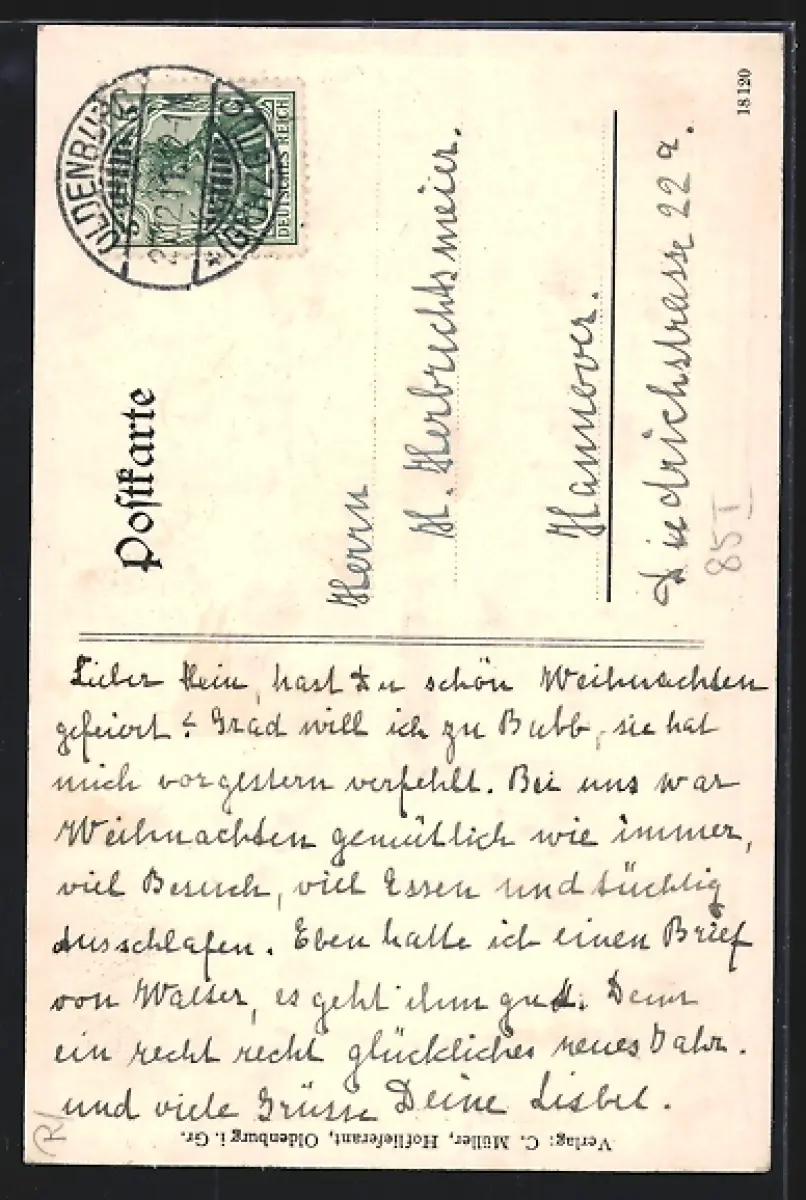 18120
OLDENBURG
(GRHZGT)
DEUTSCHES REICH
Postkarte
Herrn
H. Herbrechtsmeier.
Hannover.
Diedrichstrasse 22 a.
85 I
Lieber Hein, hast Du schön Weihnachten
gefeiert? Grad will ich zu Bubb, sie hat
mich vorgestern verfehlt. Bei uns war
Weihnachten gemütlich wie immer,
viel Besuch, viel Essen und tüchtig
ausschlafen. Eben hatte ich einen Brief
von Walter, es geht ihm gut. Denn
ein recht recht glückliches neues Jahr.
und viele Grüsse Deine Lisbet.
Verlag: C. Müller, Hoflieferant, Oldenburg i. Gr.